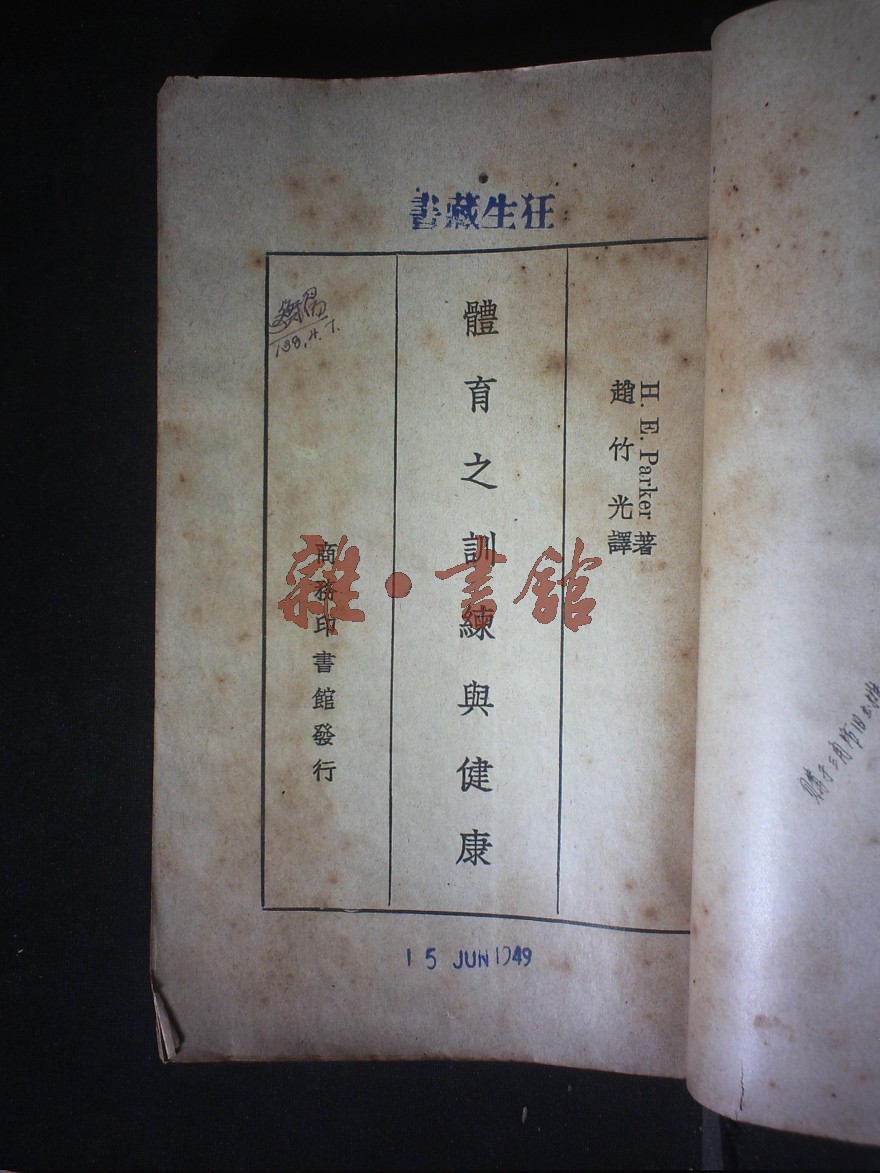 狂生藏書
H. E. Parker 著
趙竹光譯
體育之訓練與健康
商務印書館發行
138.4.7.
雜·書館
15 JUN 1949